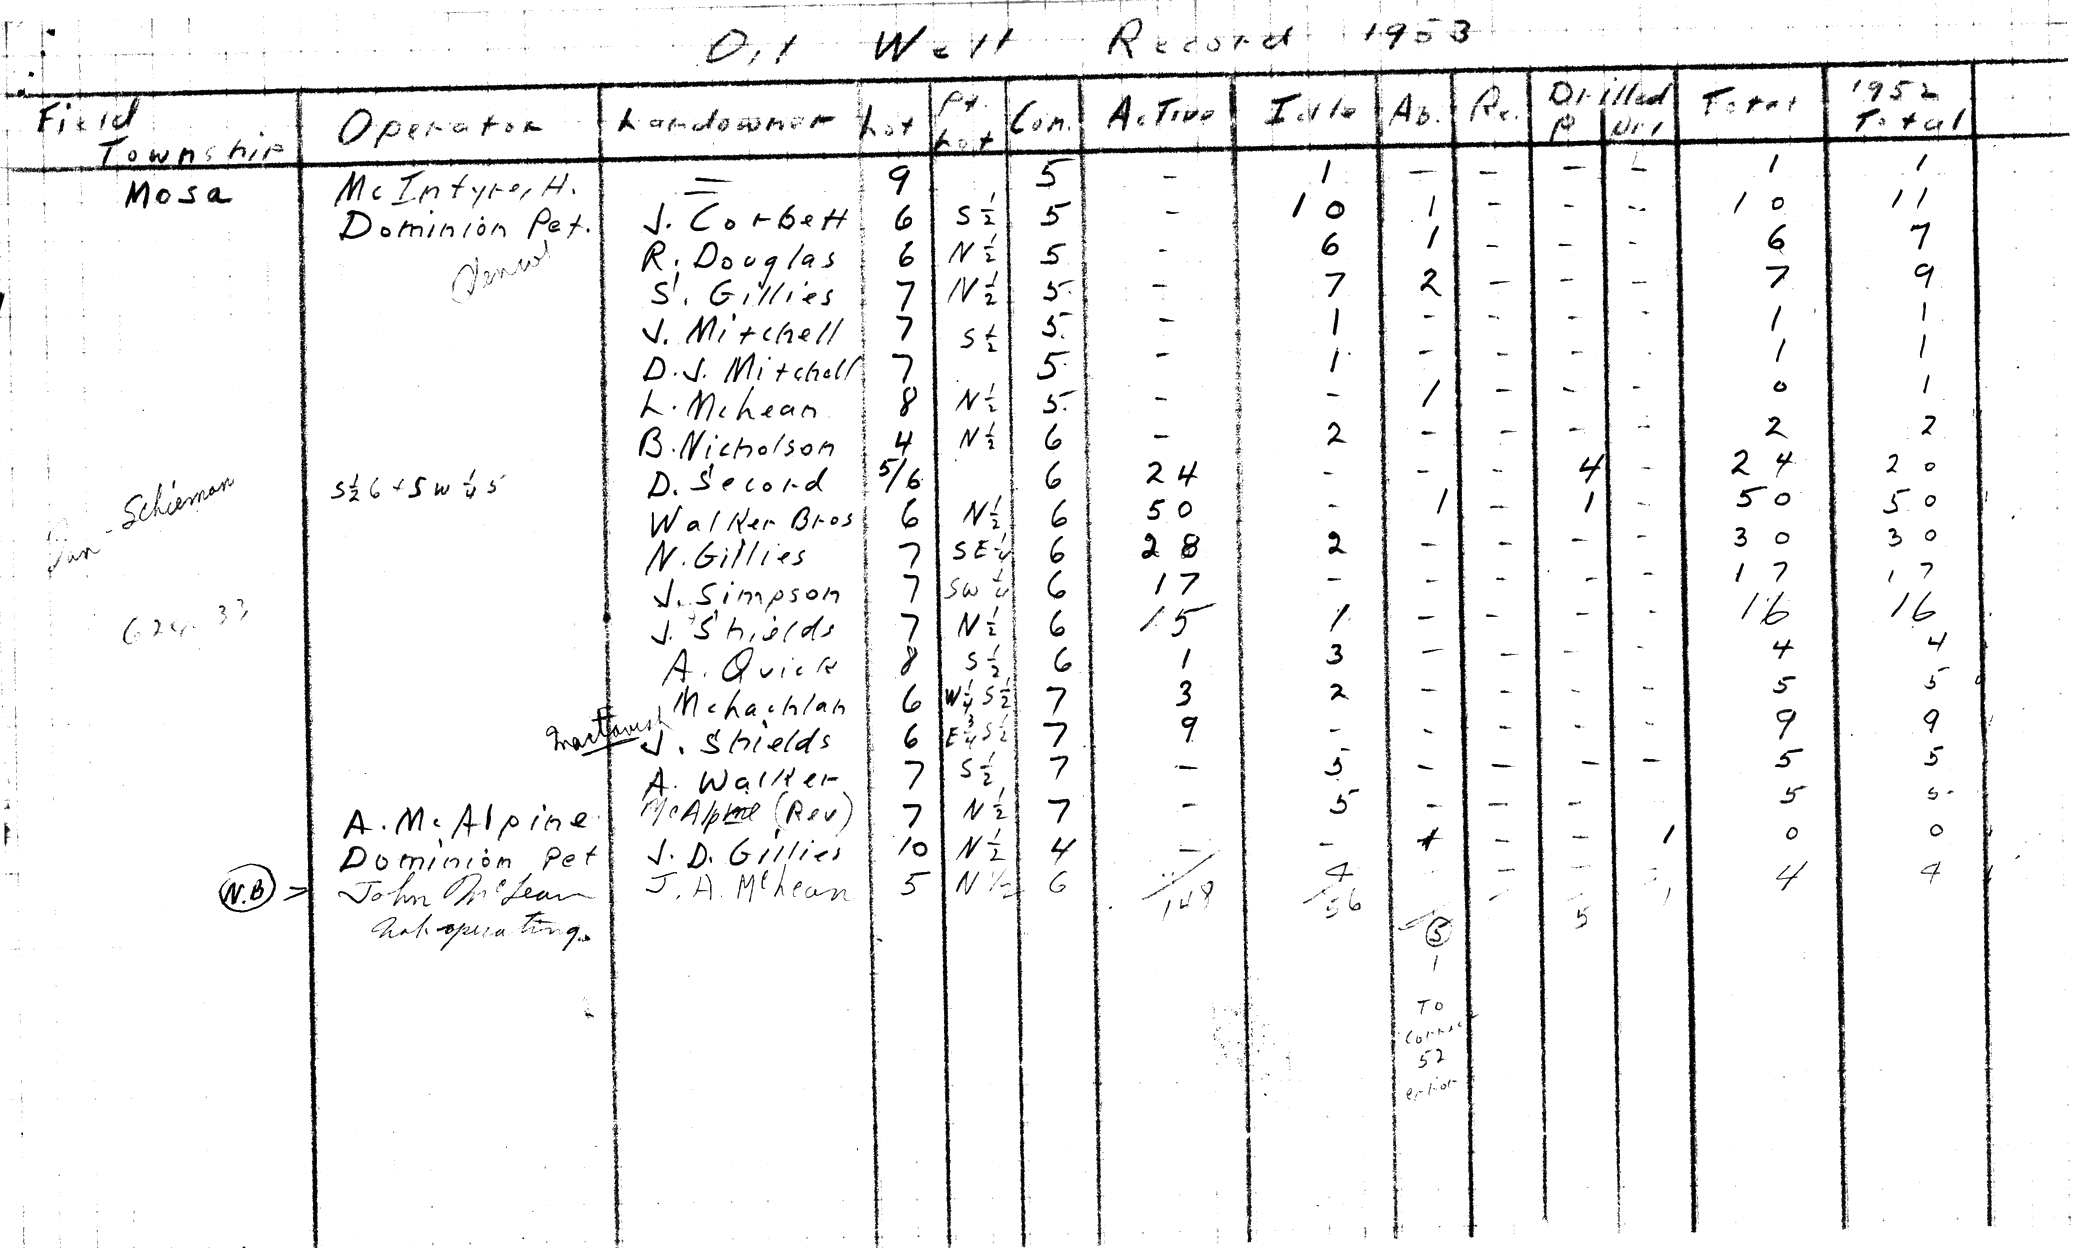 Oil Well Record 1953
Field Township Operator Landowner Lot Pt. Lot Con. Active Idle Ab. Re. Drilled P Dry Total 1952 Total
Mosa McIntyre, H. = 9 5 - 1 - - - - 1 1
Dominion Pet. J. Corbett 6 S ½ 5 - 10 1 - - - 10 11
R. Douglas 6 N ½ 5 - 6 1 - - - 6 7
S. Gillies 7 N ½ 5 - 7 2 - - - 7 9
J. Mitchell 7 S ½ 5 - 1 - - - - 1 1
D. J. Mitchell 7 5 - 1 - - - - 1 1
L. McLean 8 N ½ 5 - - 1 - - - 0 1
B. Nicholson 4 N ½ 6 - 2 - - - - 2 2
Schieman S½ 6 + SW ¼ 5 D. Secord 5/6 6 24 - - - 4 - 24 20
Walker Bros 6 N½ 6 50 - 1 - 1 - 50 50
N. Gillies 7 SE ¼ 6 28 2 - - - - 30 30
J. Simpson 7 SW ¼ 6 17 - - - - - 17 17
J. Shields 7 N ½ 6 15 1 - - - - 16 16
A. Quick 8 S ½ 6 1 3 - - - - 4 4
McLachlan 6 W ¼ S ½ 7 3 2 - - - - 5 5
MacTavish J. Shields 6 E ¾ S ½ 7 9 - - - - - 9 9
A. Walker 7 S ½ 7 - 5 - - - - 5 5
A. McAlpine McAlpine (Rev) 7 N ½ 7 - 5 - - - 5 5
Dominion Pet J. D. Gillies 10 N ½ 4 - - 1 - - 1 0 0
N.B John McLean J. A. McLean 5 N ½ 6 4 - - 4 4
148 56 5 5 1
Not operating.
1
To
Correct
52
error